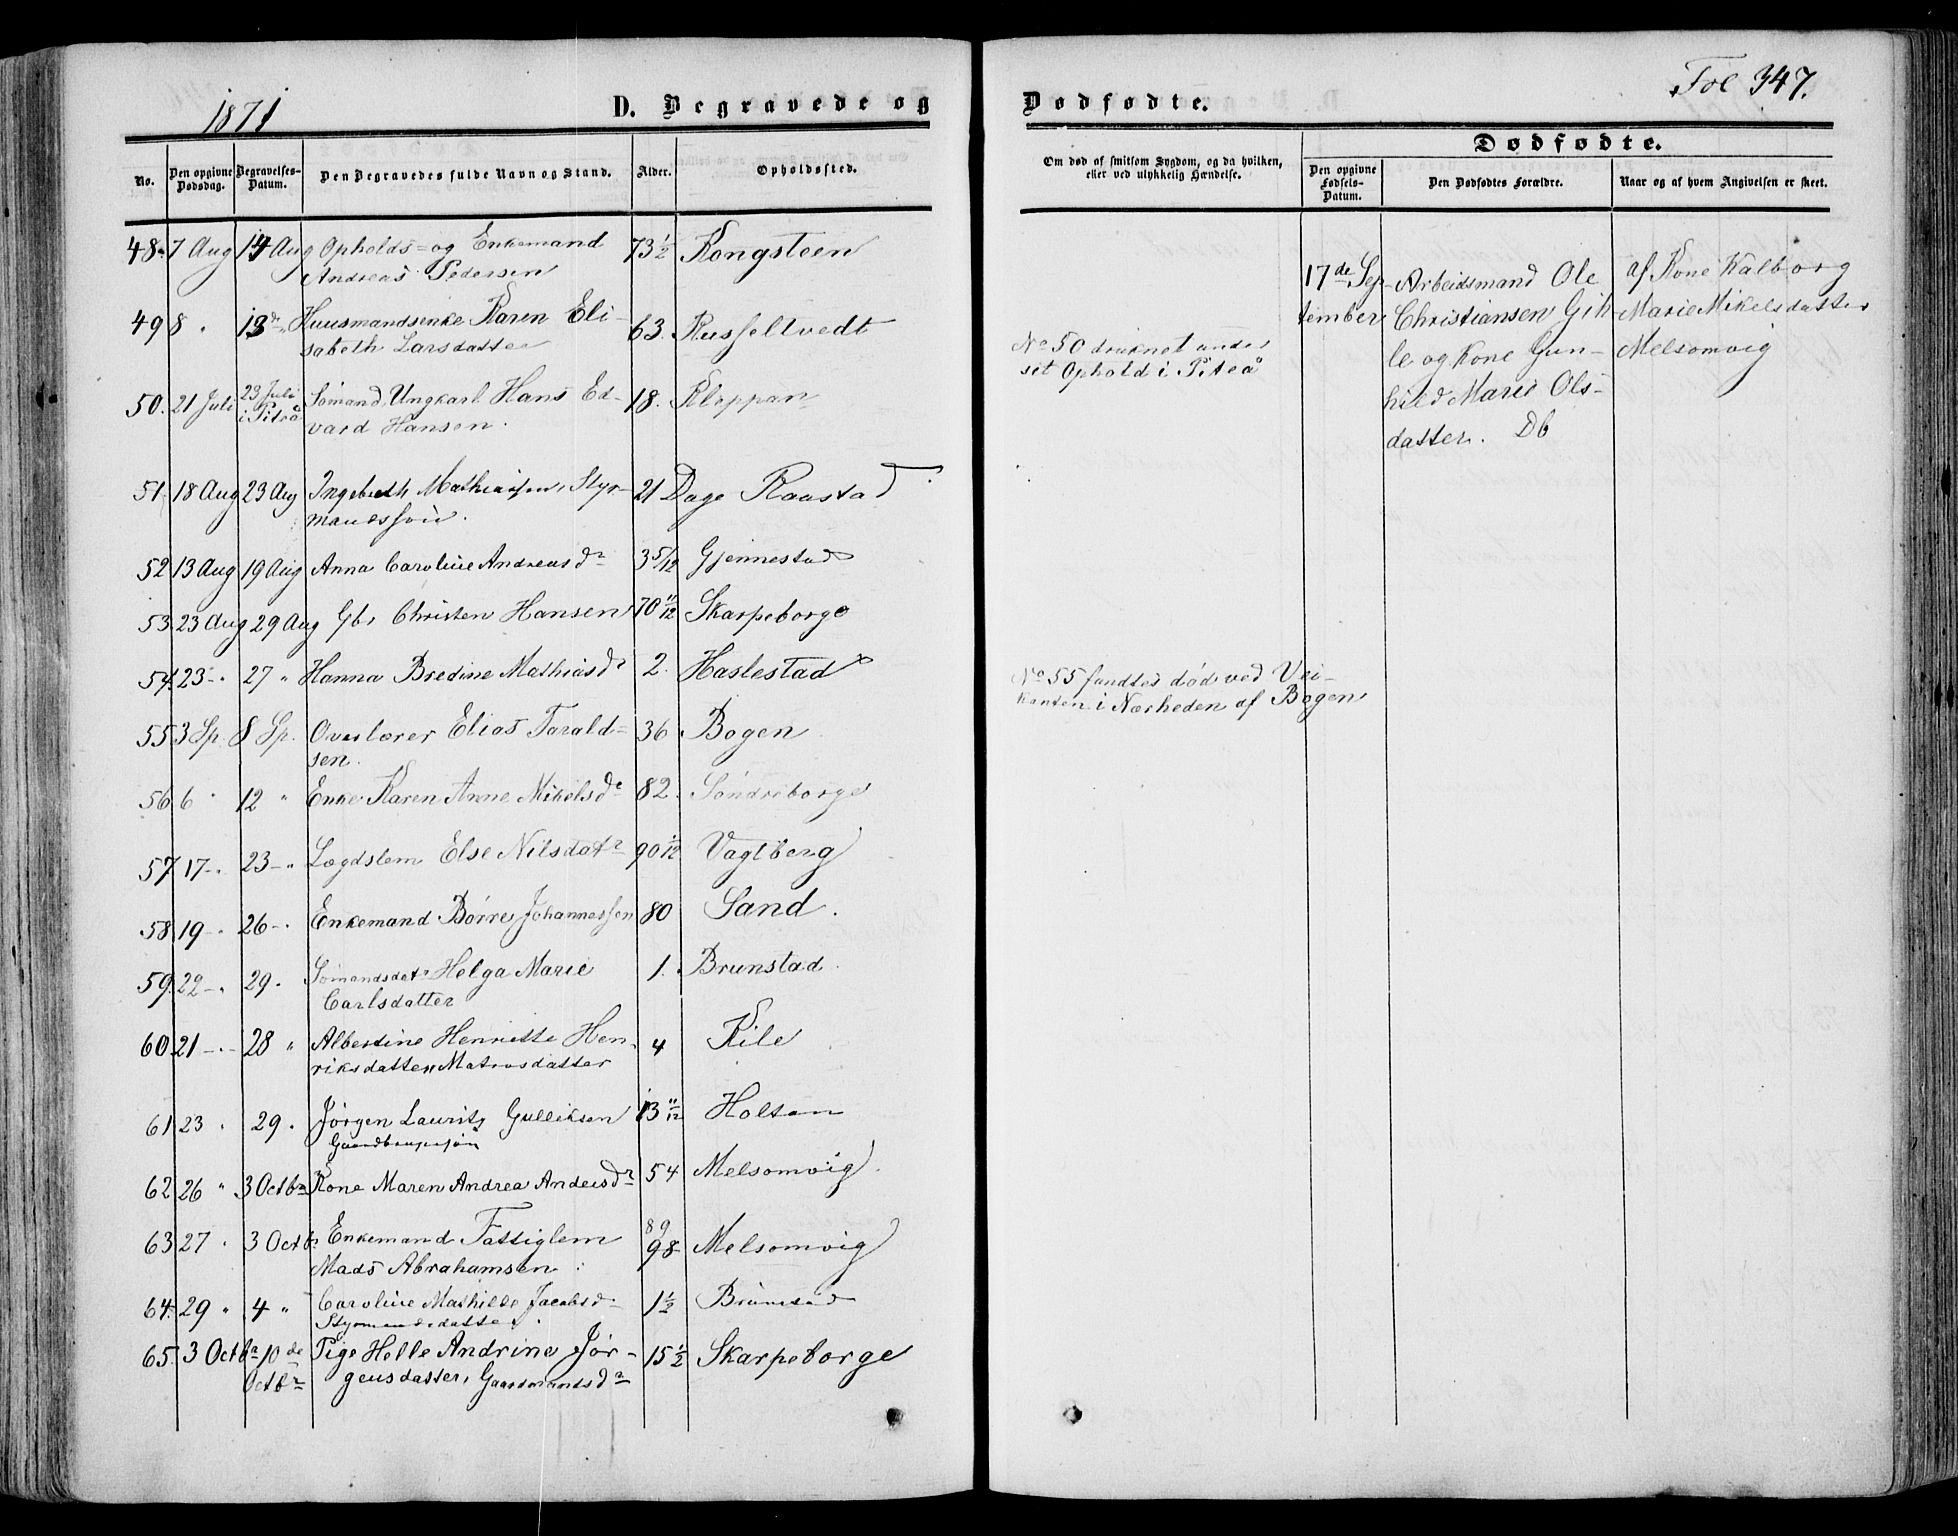 1871
D. Begravede og
No.
Den opgivne Dødsdag.
Begravelses-Datum.
Den Begravedes fulde Navn og Stand.
Alder.
Opholdssted.
48. 7 Aug 14 Aug Opholds- og Enkemand 73 1/2 Kongsteen
Andreas Pedersen
49 8 " 13 " Huusmandsenke Karen Eli- 63. Russeltvedt
sabeth Larsdatter
50. 21 Juli 23 Juli i Piteå Sømand, Ungkarl Hans Ed- 18. Kleppan
vard Hansen.
51. 18 Aug 23 Aug Ingebreth Mathiassen, Styr- 21 Dage Raastad
mandssøn.
52 13 Aug 19 Aug Anna Caroline Andreasdr 3 5/12 Gjennestad
53 23 Aug 29 Aug Gb. Christen Hansen 70 11/12 Skarpeborge
54. 23 - " 27 " Hanna Bredine Mathiasdr 2. Haslestad
55 3 Sp. 8 Sp. Overlærer Elias Tarald- 36 Bogen
sen.
56 6 " 12 " Enke Karen Anne Mikelsdr 82. Søndreborge
57 17 - " 23 - " Lægdslem Else Nilsdatr 90 1/12 Vagtberg
58 19 - " 26 - " Enkemand Børre Johannessen 80 Sand.
59. 22 - " 29. Sømandsdatr Helga Marie 1. Brunstad.
Carlsdatter
60 21 - " 28 " Albertine Henriette Hen- 4 Kile
riksdatter, Matrosdatter
61 23 " 29. Jørgen Lauritz Gulliksen 13 11/12 Holtan
Gaardbrugersøn
62 26 " 3 Octbr Kone Maren Andrea Andersdr 54 Melsomvig.
63 27 " 3 Octbr Enkemand Fattiglem 89 98 Melsomvig
Mads Abrahamsen.
64. 29 " 4 " Caroline Mathilde Jacobsdr 1 1/2 Brunstad
Styrmandsdatter.
65. 3 Octbr 10de Octbr Pige Helle Andrine Jør- 15 1/2 Skarpeborge
gensdatter, Gaardmandsdr
Fol 347.
Dødfødte.
Om død af smitsom Sygdom, og da hvilken,
eller ved ulykkelig Hændelse.
Dødfødte.
Den opgivne Fødsels-Datum.
Den Dødfødtes Forældre.
Naar og af hvem Angivelsen er skeet.
No 50 druknet under
sit Ophold i Piteå
No 55 fandtes død ved Vei-
kanten i Nærheden af Bogen
17de Sep-
tember
Arbeidsmand Ole
Christiansen Gih-
le og Kone Gun-
hild Marie Ols-
datter. Db
af Kone Valborg
Marie Mikelsdatter
Melsomvig